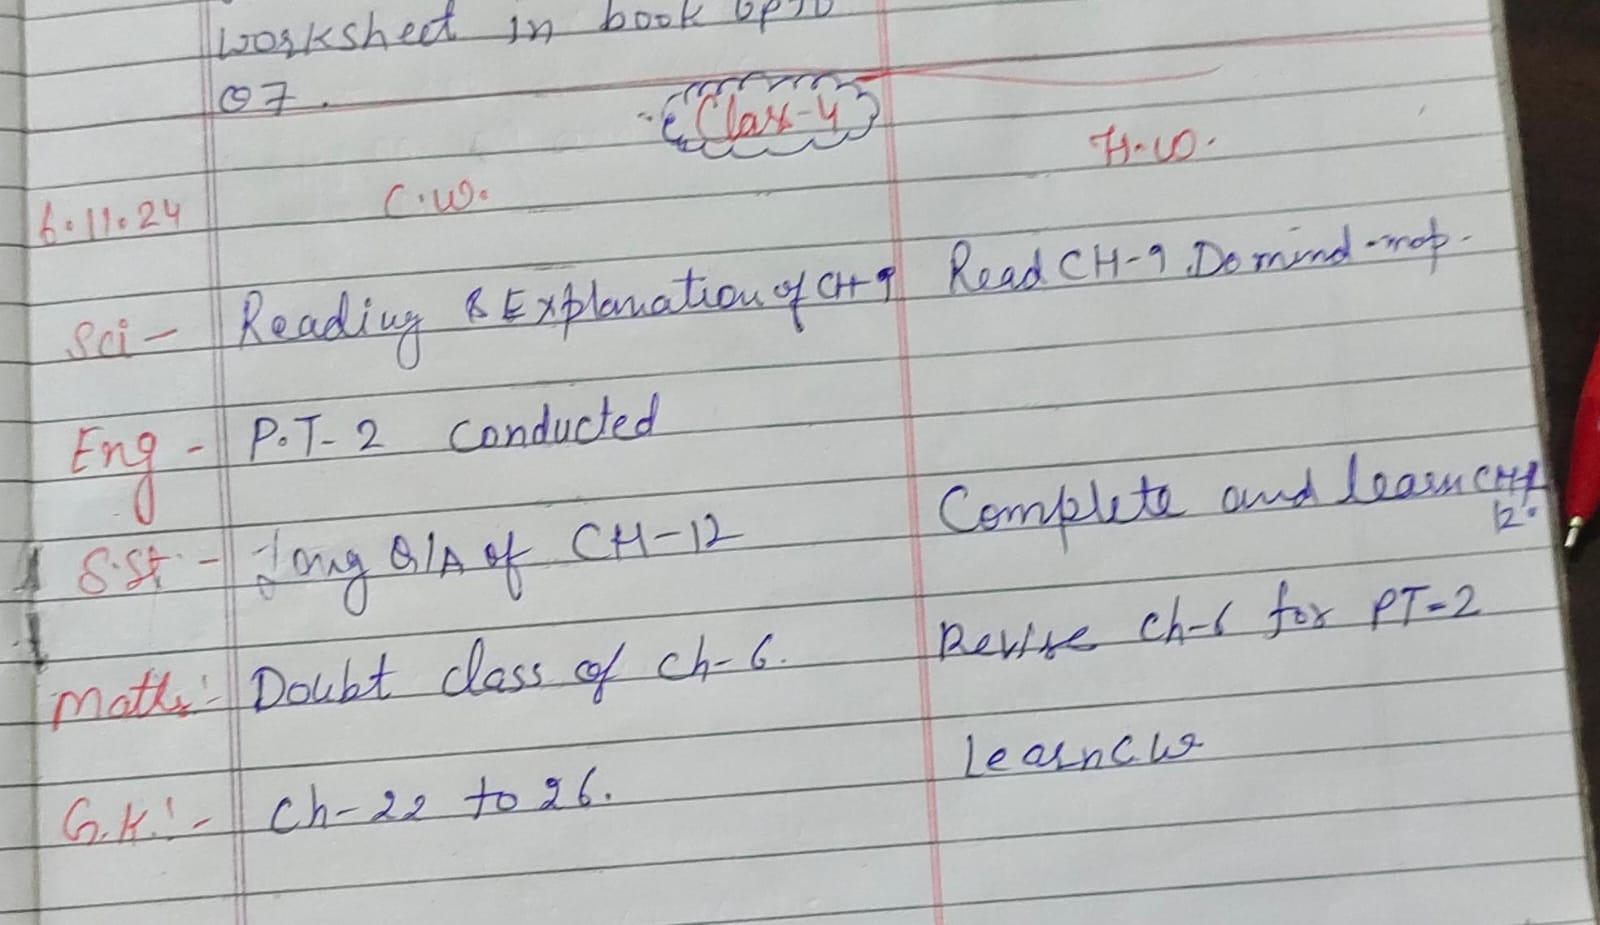 worksheet in book upto
07.
Class-4
6.11.24 C.W. H.W.
Sci - Reading & Explanation of CH-9 Read CH-9. Do mind-map.
Eng - P.T-2 Conducted
S.St - Long Q/A of CH-12 Complete and learn CH-
12.
Maths:- Doubt class of ch-6. Revise ch-6 for PT-2
G.K.:- Ch-22 to 26. Learn C.W